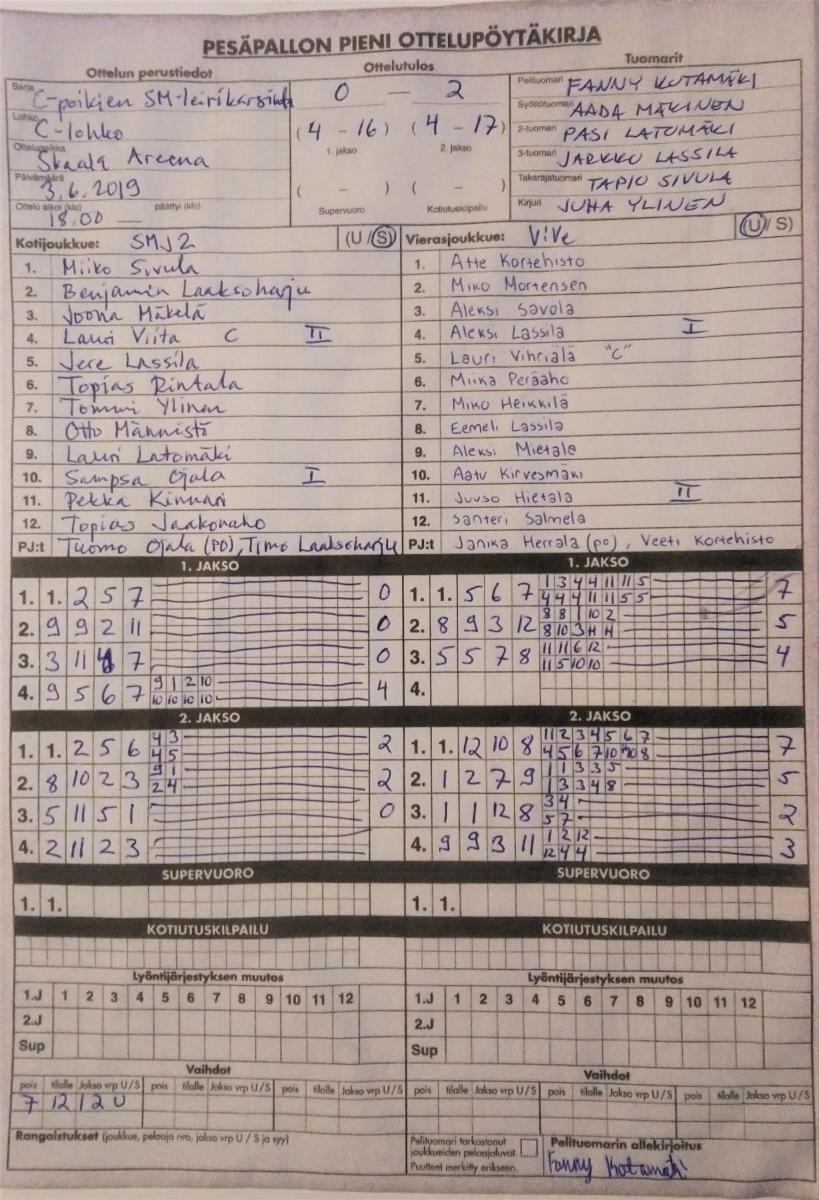 PESÄPALLON PIENI OTTELUPÖYTÄKIRJA
Ottelun perustiedot Ottelutulos Tuomarit
Sarja C-poikien SM-leirikarsinta 0 — 2 Pelituomari FANNY KOTAMÄKI
Lohko C-lohko (4 - 16) (4 - 17) Syöttötuomari AADA MÄKINEN
1. jakso 2. jakso 2-tuomari PASI LATOMÄKI
Ottelupaikka Skaala Areena 3-tuomari JARKKO LASSILA
Päivämäärä 3.6.2019 ( - ) ( - ) Takarajatuomari TAPIO SIVULA
Ottelu alkoi (klo) 18.00 — päättyi (klo) Supervuoro Kotiutuskilpailu Kirjuri JUHA YLINEN
Kotijoukkue: SMJ2 (U/S) Vierasjoukkue: ViVe (U/S)
1. Miiko Sivula 1. Atte Kortehisto
2. Benjamin Laaksoharju 2. Miko Mortensen
3. Joona Mäkelä 3. Aleksi Savola
4. Lauri Viita C II 4. Aleksi Lassila I
5. Jere Lassila 5. Lauri Vihriälä "C"
6. Topias Rintala 6. Miika Peräaho
7. Tommi Ylinen 7. Miko Heikkilä
8. Otto Männistö 8. Eemeli Lassila
9. Lauri Latomäki 9. Aleksi Mietala
10. Sampsa Ojala I 10. Aatu Kirvesmäki
11. Pekka Kinnari 11. Juuso Hietala II
12. Topias Jaakonaho 12. Santeri Salmela
PJ:t Tuomo Ojala (PO), Timo Laaksoharju PJ:t Janika Herrala (po), Veeti Kortehisto
1. JAKSO 1. JAKSO
1. 1. 2 5 7 0 1. 1. 5 6 7 1 3 4 4 11 11 5 7
4 4 4 11 11 5 5
2. 9 9 2 11 0 2. 8 9 3 12 8 8 1 10 2 5
8 10 3
3. 3 11 7 0 3. 5 5 7 8 11 11 6 12 4
11 5 10 10
4. 9 5 6 7 9 1 2 10 4 4.
10 10 10 10
2. JAKSO 2. JAKSO
1. 1. 2 5 6 4 3 2 1. 1. 12 10 8 11 2 3 4 5 6 7 7
4 5 4 5 6 7 10 10 8
2. 8 10 2 3 9 1 2 2. 1 2 7 9 1 1 3 3 5 5
2 4 1 3 3 4 8
3. 5 11 5 1 0 3. 1 1 12 8 3 4 2
5 7
4. 2 11 2 3 4. 9 9 3 11 1 2 12 3
12 4 4
SUPERVUORO SUPERVUORO
1. 1. 1. 1.
KOTIUTUSKILPAILU KOTIUTUSKILPAILU
Lyöntijärjestyksen muutos Lyöntijärjestyksen muutos
1.J 1 2 3 4 5 6 7 8 9 10 11 12 1.J 1 2 3 4 5 6 7 8 9 10 11 12
2.J 2.J
Sup Sup
Vaihdot Vaihdot
pois tilalle Jakso vrp U/S pois tilalle Jakso vrp U/S pois tilalle Jakso vrp U/S pois tilalle Jakso vrp U/S pois tilalle Jakso vrp U/S pois tilalle Jakso vrp U/S
7 12 1 2 U
Rangaistukset (joukkue, pelaaja nro, jakso vrp U / S ja syy) Pelituomari tarkastanut joukkueiden pelaajaluvat Pelituomarin allekirjoitus
Puutteet merkitty erikseen. Fanny Kotamäki